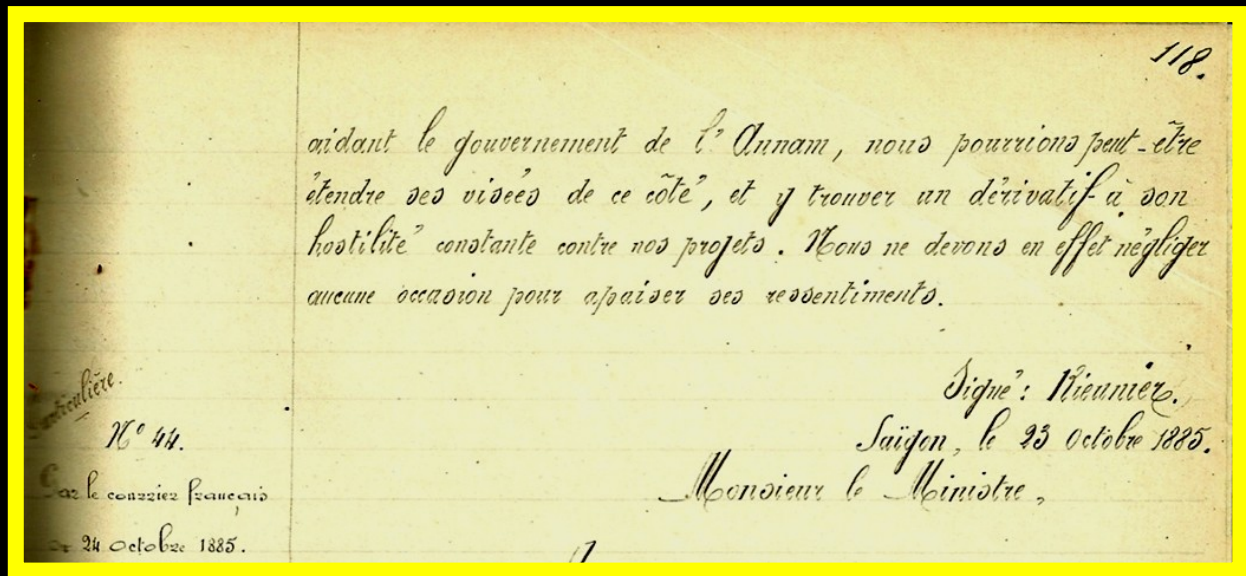 118.
aidant le gouvernement de l'Annam, nous pourrions peut-être
étendre ses visées de ce côté, et y trouver un dérivatif à son
hostilité constante contre nos projets. Nous ne devons en effet négliger
aucune occasion pour apaiser ses ressentiments.
Signé: Rieunier.
Saïgon, le 23 Octobre 1885.
Monsieur le Ministre,
Particulière.
N° 44.
Par le courrier français
24 Octobre 1885.